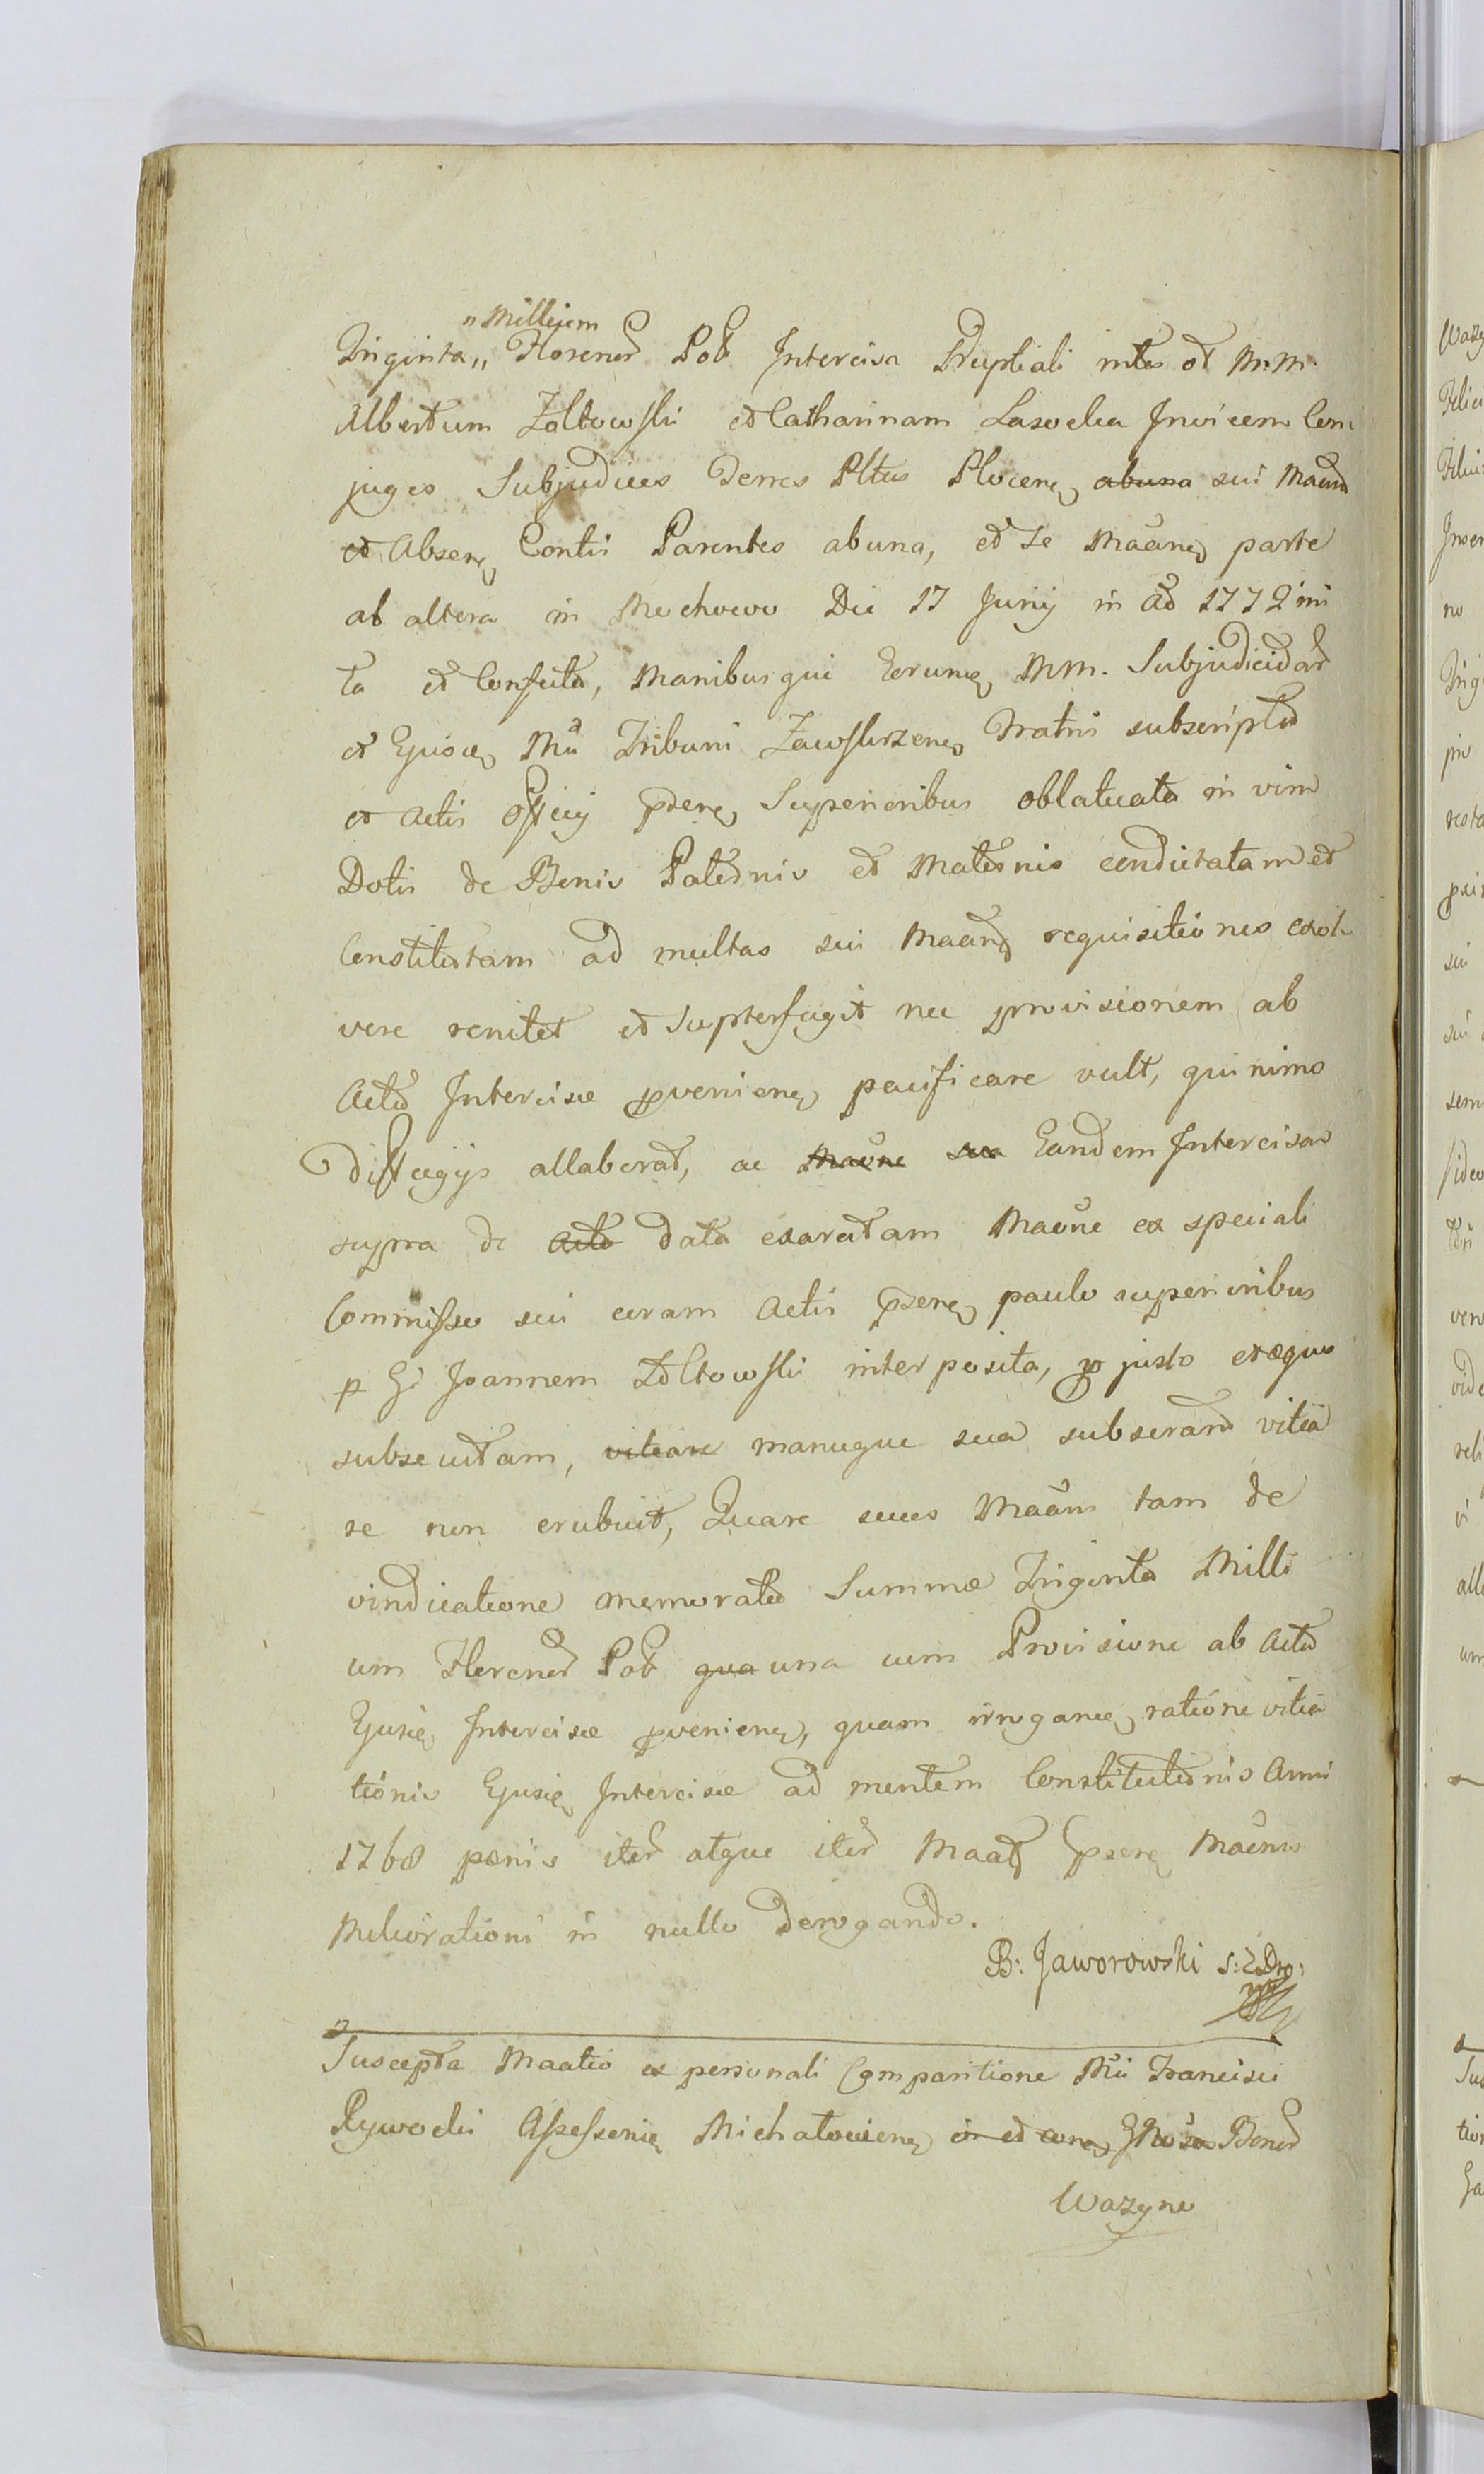 „Millijem
Triginta „ Floreñ Pol Intercisa Nuptiali inter et M.M.
Albertum Żołtowski et Catharinam Lasocka Invicem Con
juges Subjudices Terres Pltus Plocen, abuna sui Maand
et Absen, Contis Parentes abuna, et se Maane parte
ab altera in Mochowo Die 17 Junij in Ao 1772 ini
ta et Confecta, Manibusque Eorum, MM. Subjudicidar
et Ejusd, Mci Tribuni Zawskrzen, Fratris subscripta
et Actis Officij psen, Superioribus oblatuata in vim
Dotis de Bonis Paternis et Maternis condictatam et
Constitutam ad multas sui Maand requisitiones exol
vere renitet et Supterfugit nec provisionem ab
Acta Intercisæ pvenien, pacificare vult, quinimo
diffugijs allaborat, ac Maone sua Eandem Intercisa
supra de acto data exaratam Maone ex speciali
Commisso sui coram Actis psen, paulo superioribus
p G Joannem Żołtowski interposita, pro justo et æquo
subsecutam, vitiare manuque sua subscrand vitia
se non erubuit, Quare suus Maans tam de
vindicatione memorata Summæ Triginta Milli
um Floreñ Pol qua una cum Provisione ab Acta
Ejusd, Intercisæ pvenien, quam irrogand, ratione vitia
tionis Ejusd, Intercisæ ad mentem Constitutionis Anni
1768 pænis iter atque iter Maat psen, Maonis
Meliorationi in nullo derogando.
B: Jaworowski S:Z Dro:
mp
Suscepta Maatio ex personali Comparitione Mci Francisci
Rywocki Assessoris Michałowien, in et con, Bonor
Wazyno